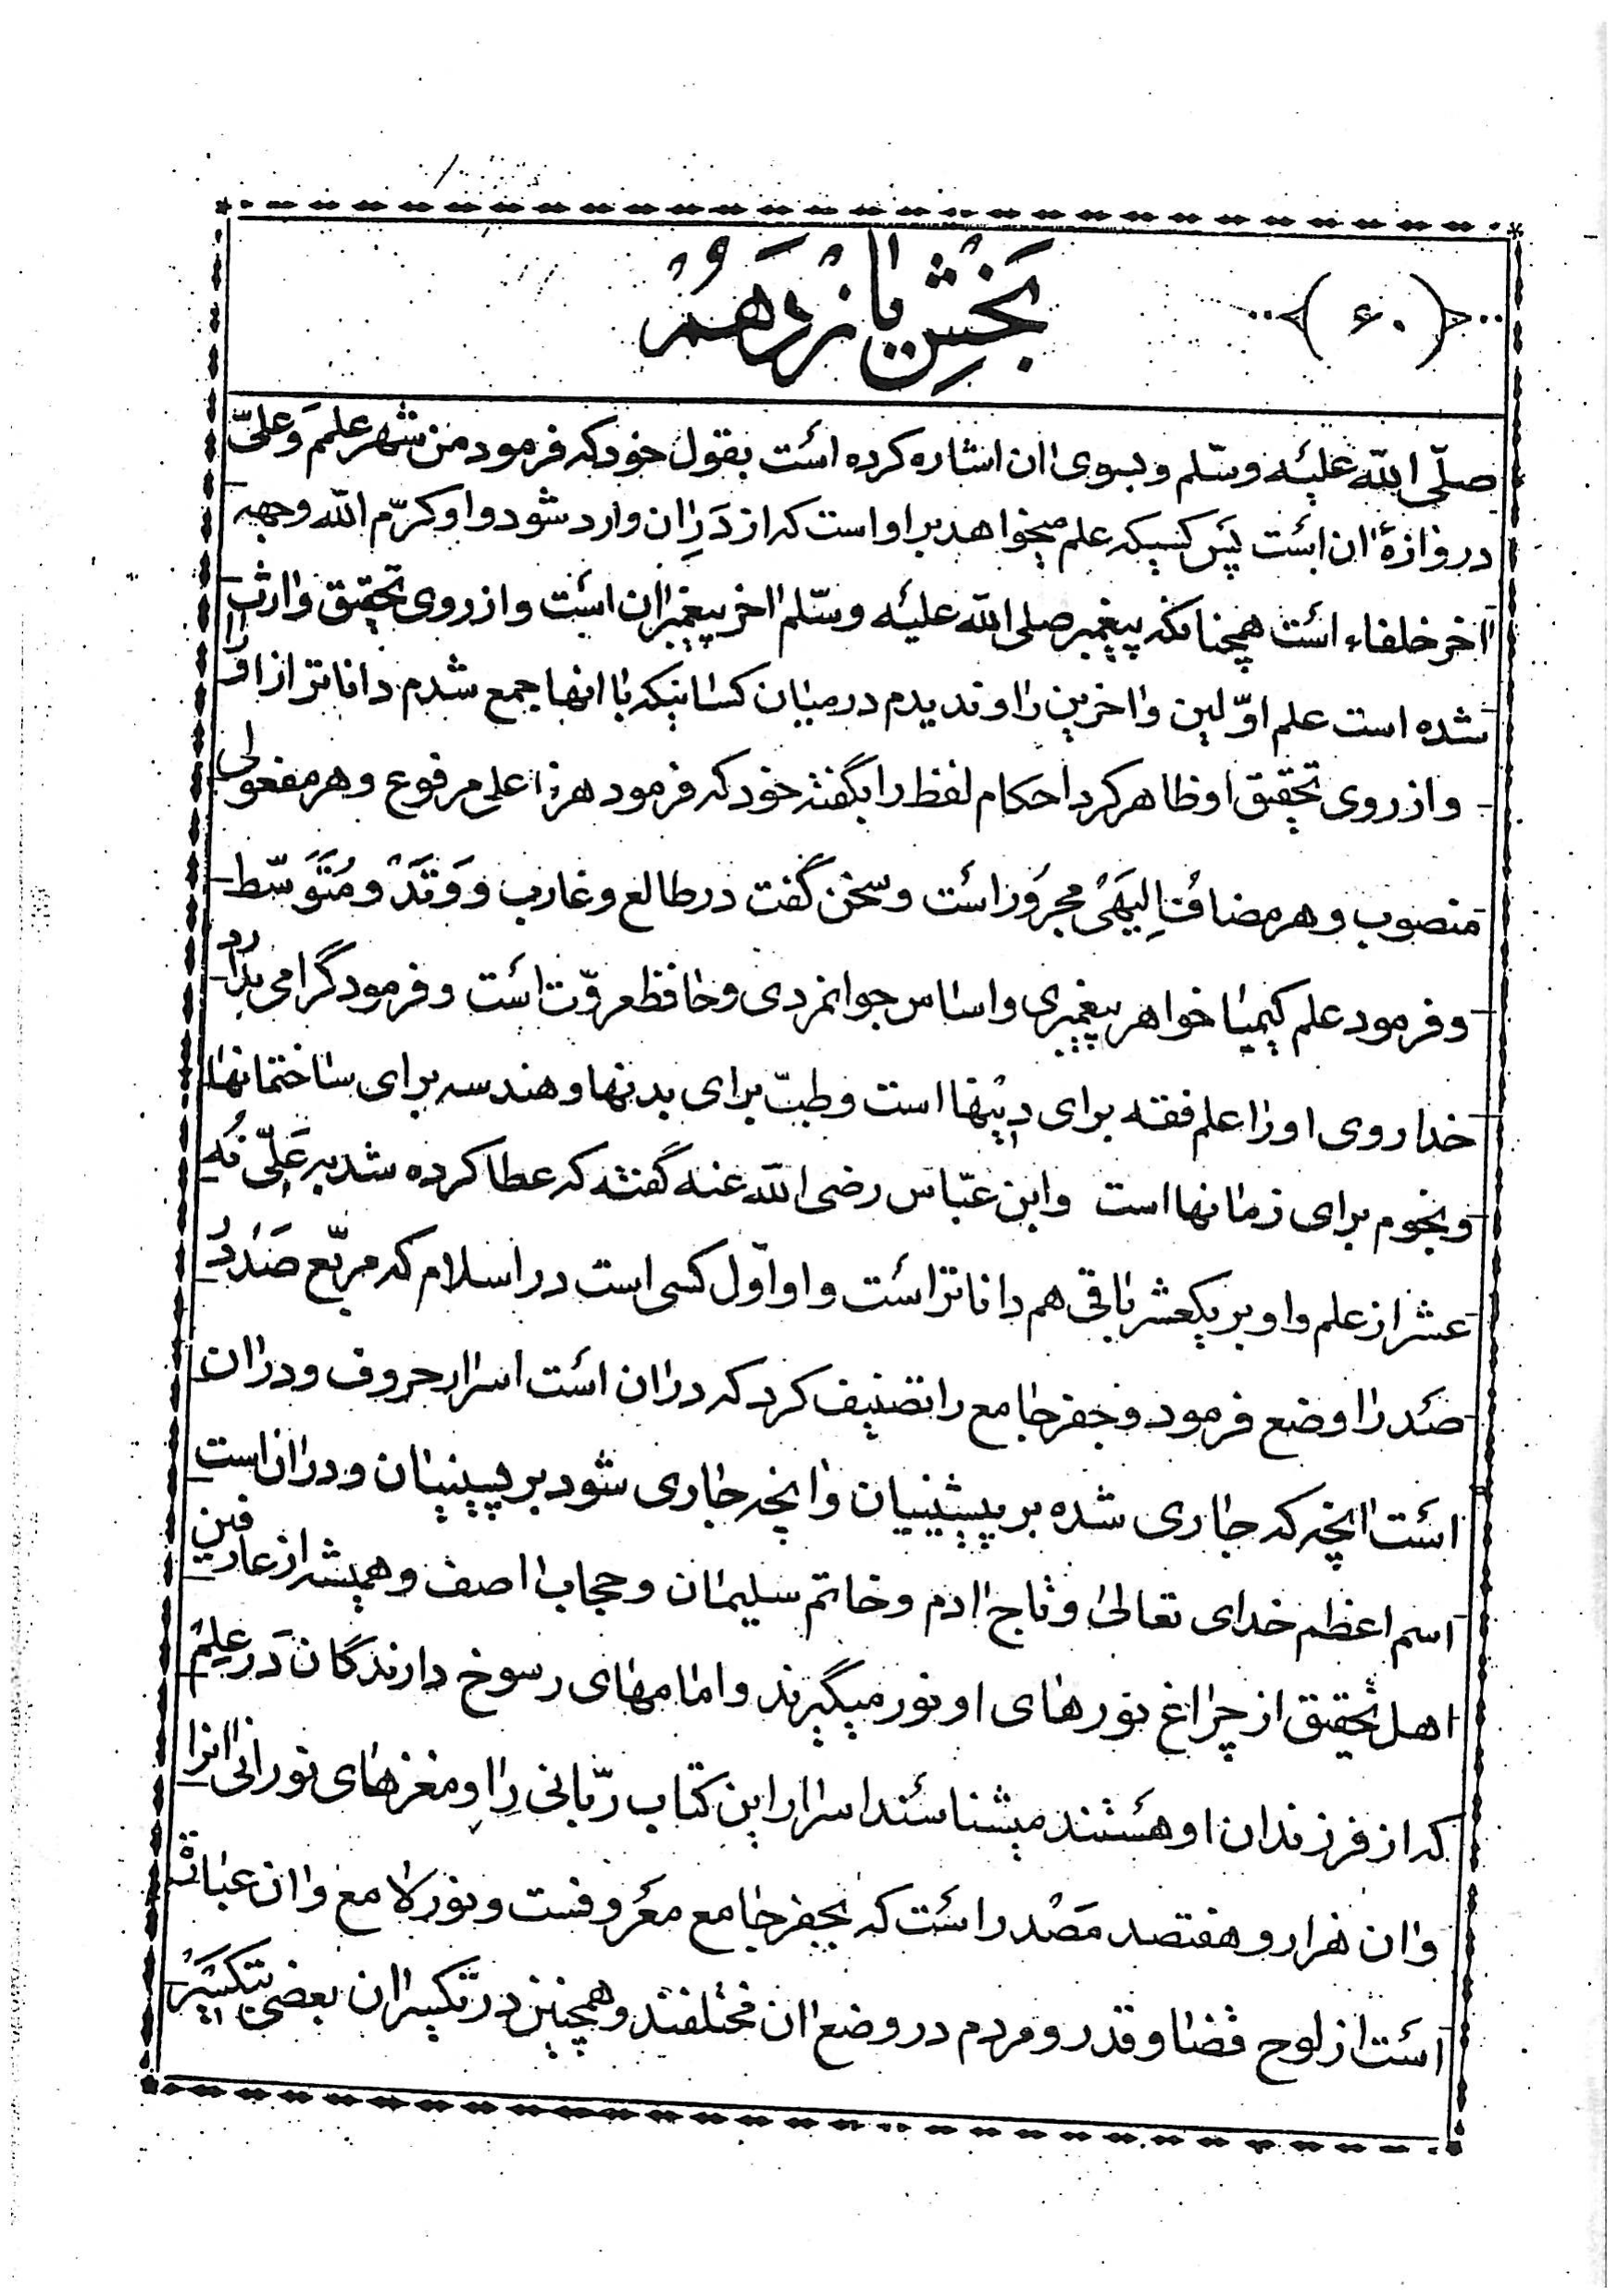 (۶۰)
بخش یانزدهم
صلّی الله علیه وسّلم وبسوی اان اشاره کرده است بقول خودکه فرمود من شهر علمم وعلیّ
دروازۀ اان است پس کسیکه علم میخواهد براو است که از درِ اان وارد شود واو کرّم الله وجهه
ااخر خلفاء است همچنانکه پیغمبر صلی الله علیه وسّلم ااخر پیغمبران است واز روی تحقیق وارث
شده است علم اوّلین وااخرین را وندیدم درمیان کسانیکه با اانها جمع شدم داناتر از او را
واز روی تحقیق او ظاهر کرد احکام لفظ را بگفته خود که فرمود هر فاعلی مرفوع وهر مفعولی
منصوب وهر مضافُ اِلیهی مجرور است وسخن گفت در طالع وغارب ووَتَد ومُتَوَسّط
وفرمود علم کیمیا خواهر پیغمبری واساس جوانمردی وحافظ مروّت است وفرمود گرامی بدارد
خدا روی او را علم فقه برای دینها است وطبّ برای بدنها وهندسه برای ساختمانها
ونجوم برای زمانها است وابن عبّاس رضی الله عنه گفته که عطا کرده شد به عَلِیّ نُه
عشر از علم واو بر یکعشر باقی هم داناتر است واو اوّل کسی است در اسلام که مربّع صَد در
صَد را وضع فرمود وجفر جامع را تصنیف کرد که در اان است اسرار حروف ودر اان
است اانچه که جاری شده بر پیشینیان واانچه جاری شود بر پسینیان ودر اان است
اسم اعظم خدای تعالی وتاج اادم وخاتم سلیمان وحجاب ااصف وهمیشه از عارفین
اهل تحقیق از چراغ نورهای او نور میگیرند وامامهای رسوخ دارندگان در علم
که از فرزندان او هستند میشناسند اسرار این کتاب ربّانی را ومغزهای نورانی اانرا
واان هزار وهفتصد مَصْدر است که بجفر جامع معروفست ونور لامع واان عبارة
است از لوح قضا وقدر ومردم در وضع اان مختلفند وهمچنین در تکسیر اان بعضی بتکسیر